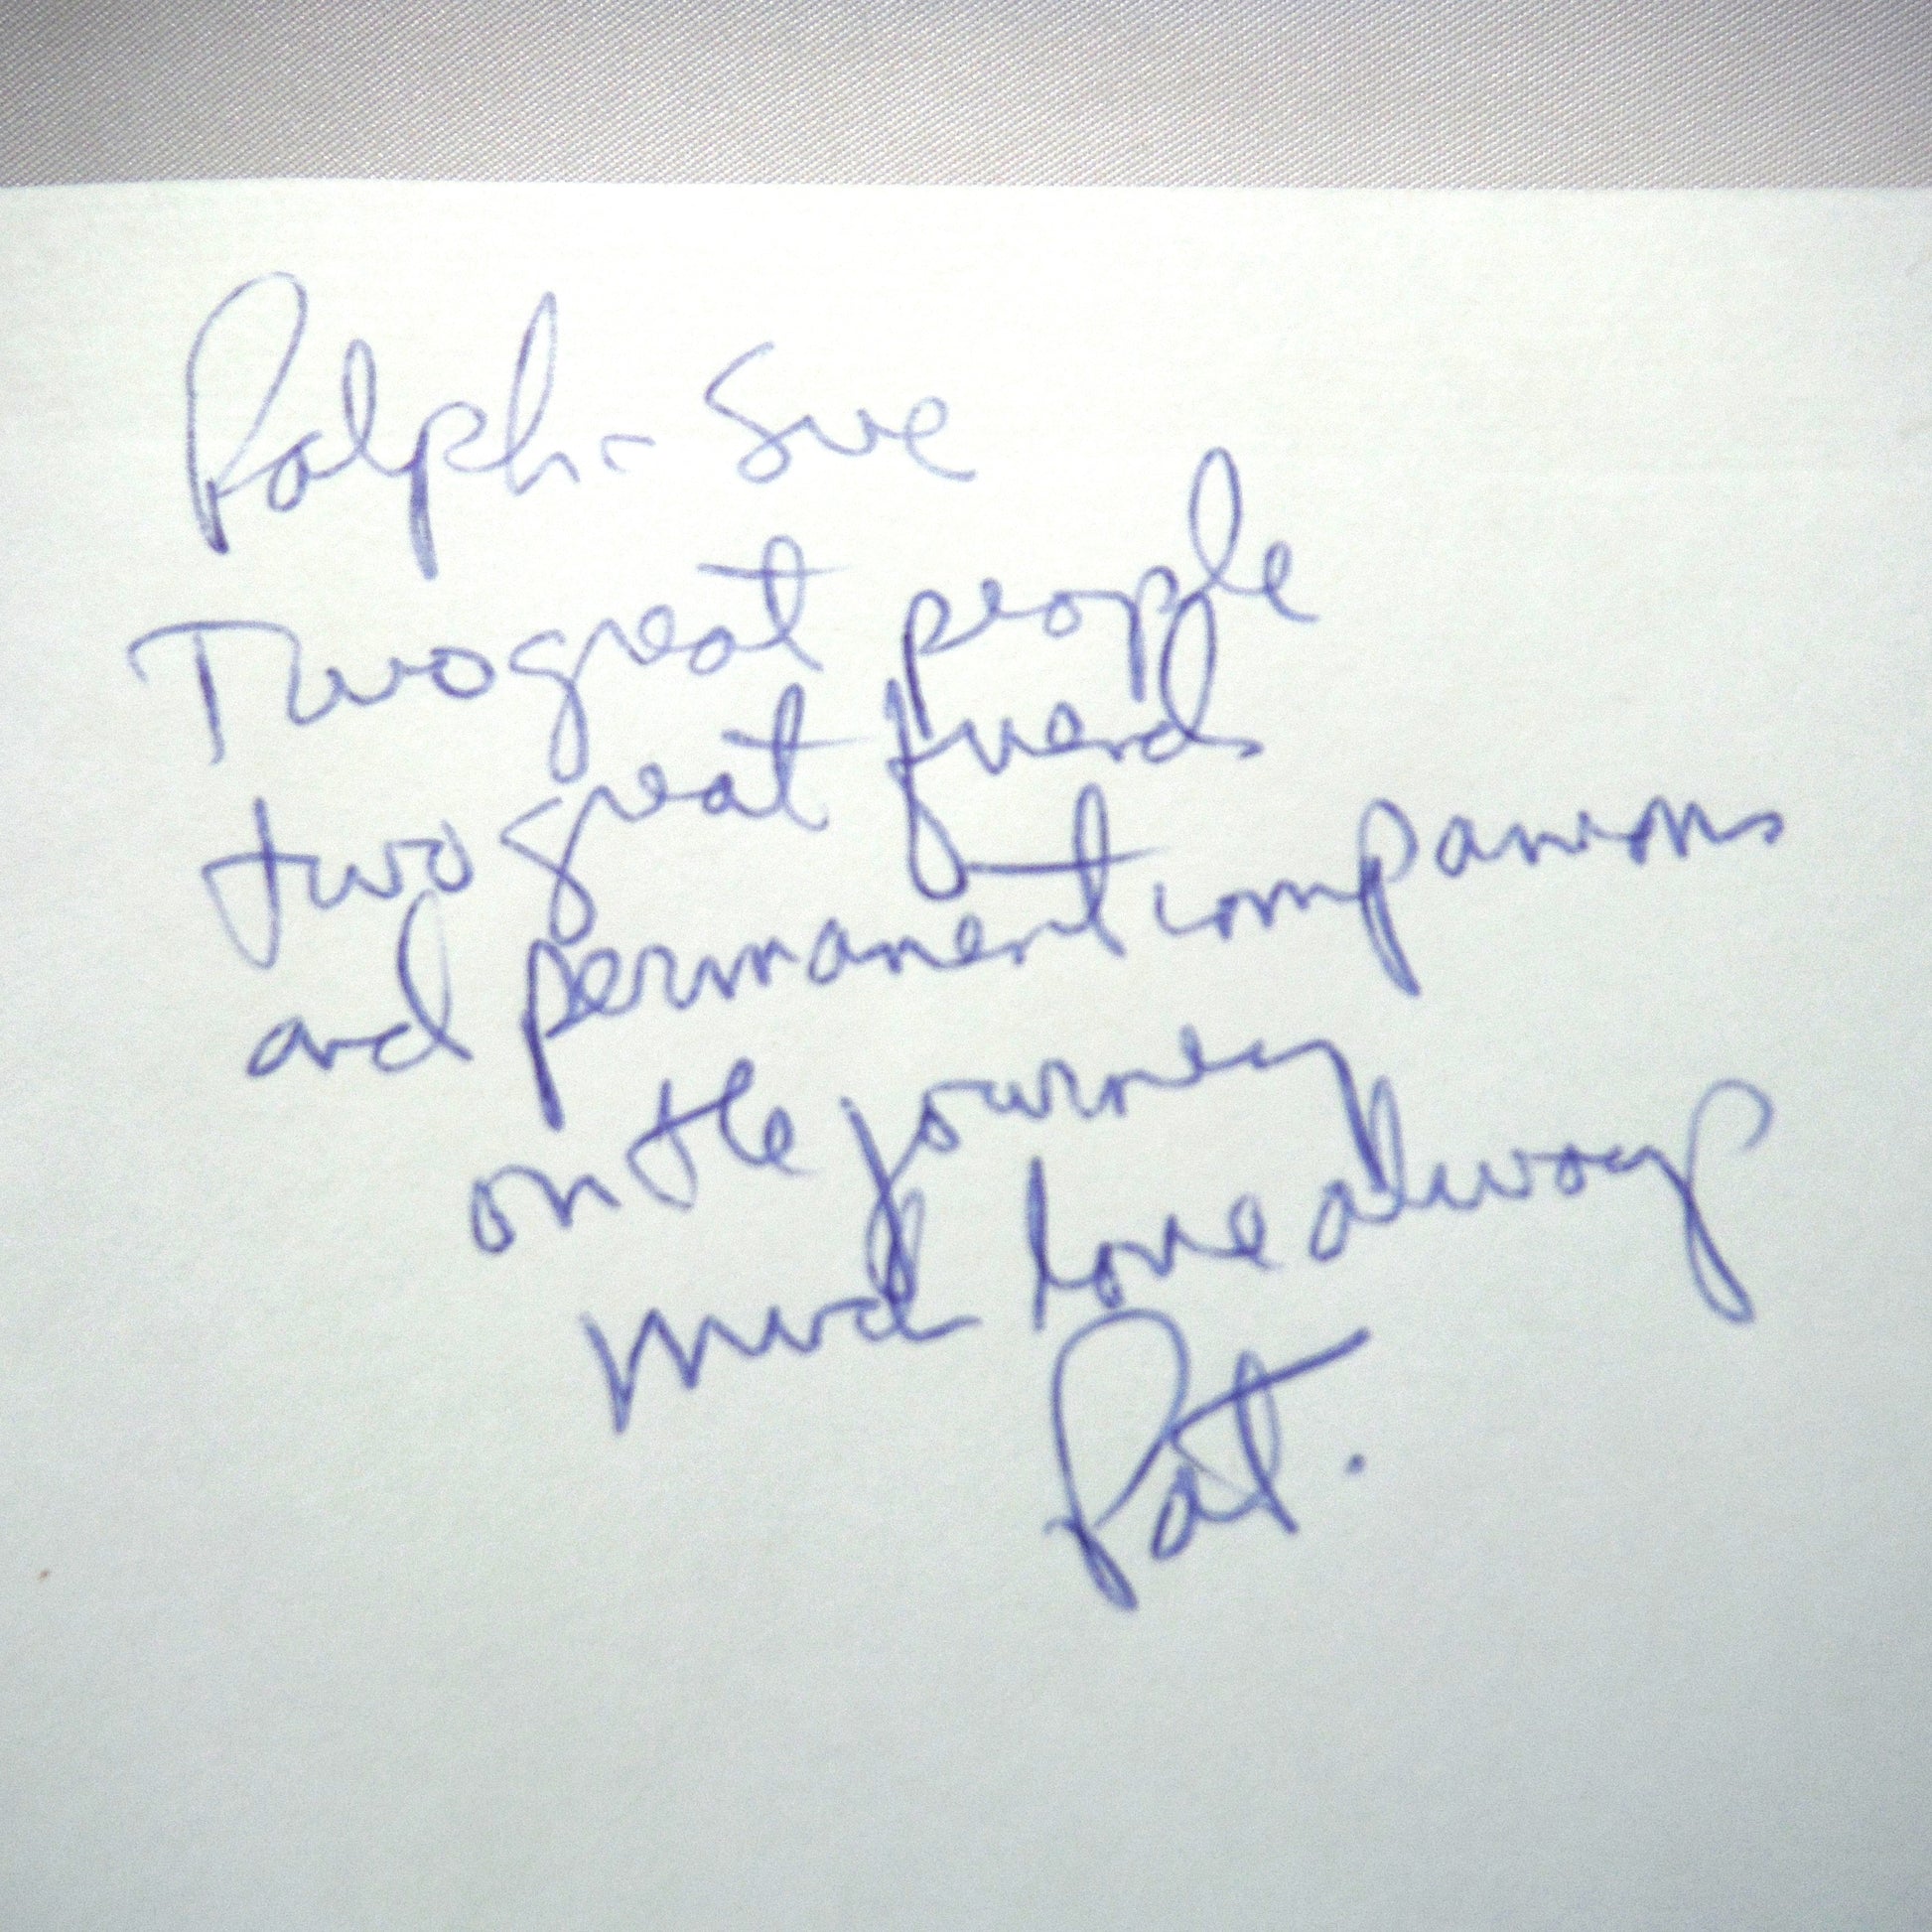 Ralph - Sue
Two great people
two great friends
and permanent companions
on the journey
much love always
Pat.